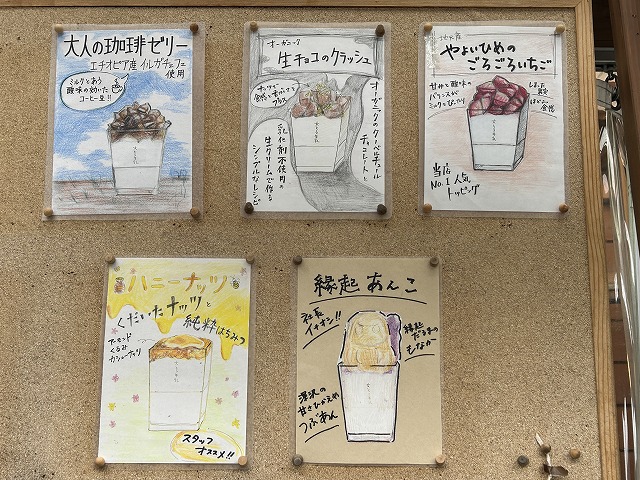 大人の珈琲ゼリー
エチオピア産 イルガチェフェ
使用
ミルクと合う
酸味の効いた
コーヒー豆!!
オーガニック
生チョコのクラッシュ
ナッツで
食感と香ばしさを
プラス
オーガニックのクーベルチュール
チョコレートと
乳化剤不使用の
生クリームで作る
シンプルなレシピ
地元産
やよいひめの
ごろごろいちご
甘みと酸味の
バランスが
ミルクにぴったり
当店
No.1 人気
トッピング
ハニーナッツ
くだいたナッツと
純粋はちみつ
アーモンド
くるみ
カシューナッツ
スタッフ
オススメ!!
縁起 あんこ
社長
イチオシ!!
縁起
だるまの
もなか
深沢の
甘さひかえめ
つぶあん